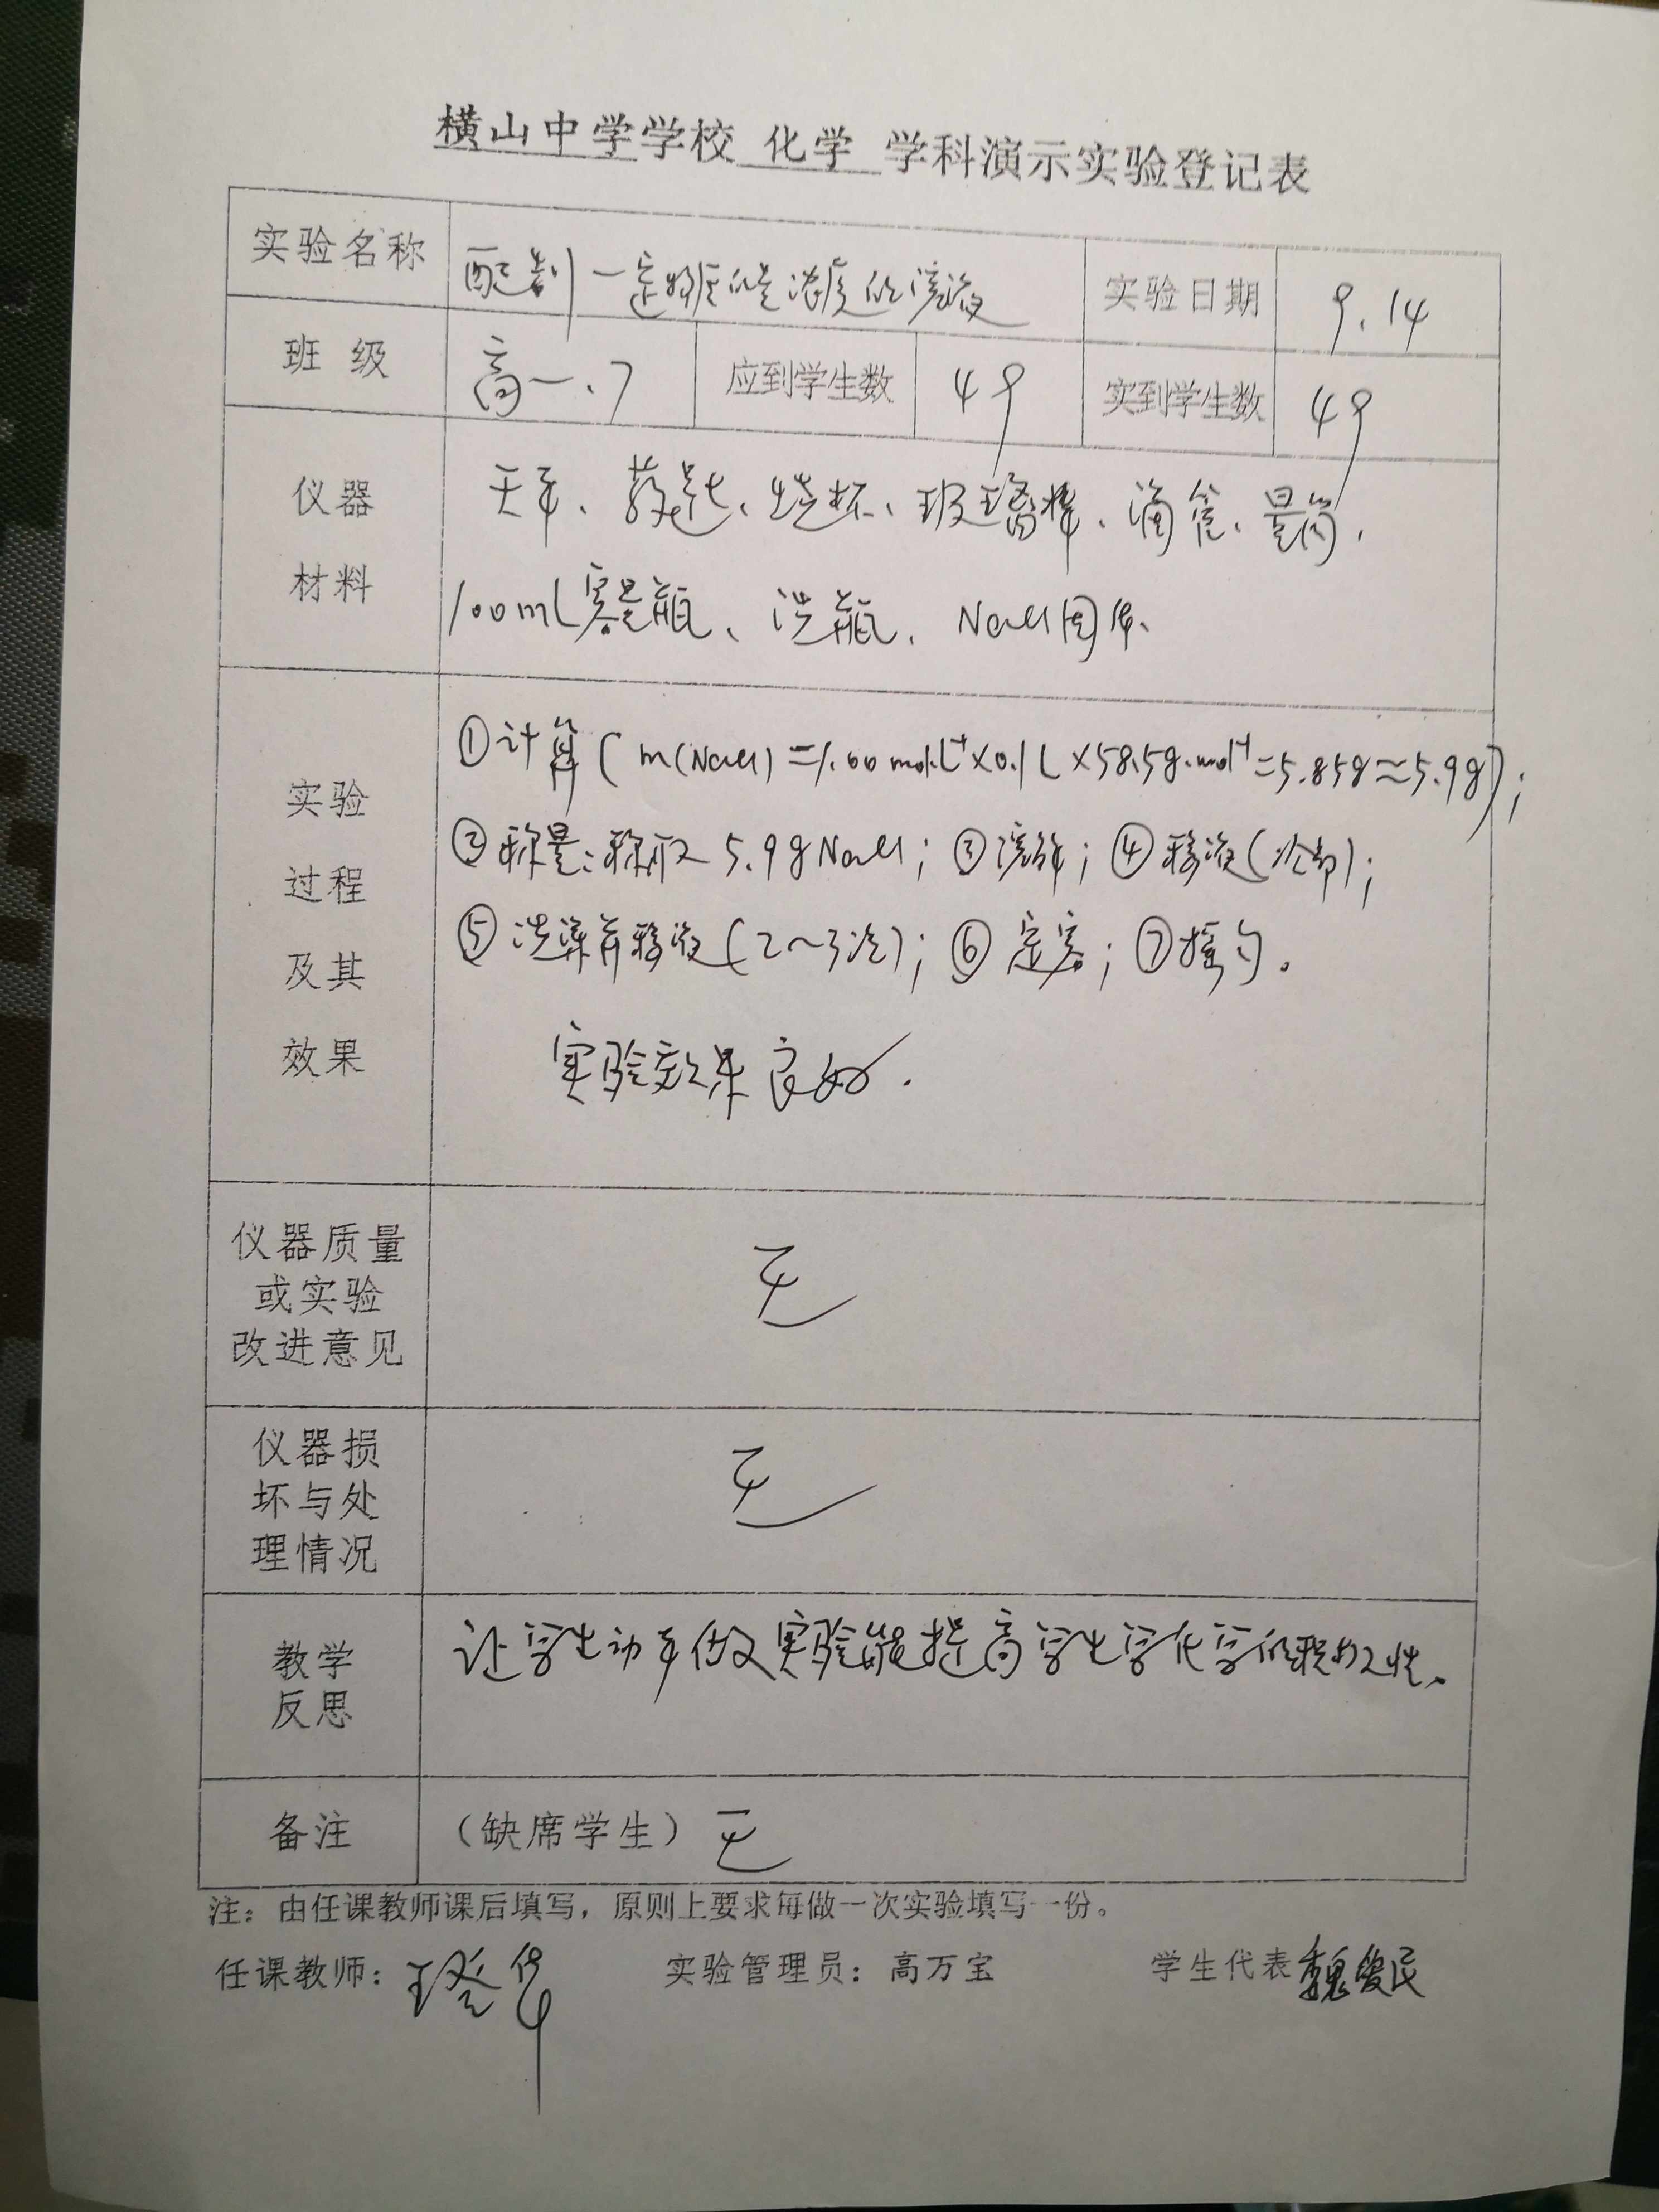 横山中学学校 化学 学科演示实验登记表
实验名称 配制一定物质的量浓度的溶液 实验日期 9.14
班 级 高一.7 应到学生数 49 实到学生数 49
仪器 天平、药匙、烧杯、玻璃棒、滴管、量筒、
材料 100mL容量瓶、洗瓶、NaCl固体、
实验 ①计算(m(NaCl)=1.00mol·L⁻¹×0.1L×58.5g·mol⁻¹=5.85g≈5.9g);
过程 ②称量:称取5.9gNaCl;③溶解;④移液(冷却);
及其 ⑤洗涤并移液(2~3次);⑥定容;⑦摇匀。
效果 实验效果良好.
仪器质量
或实验 无
改进意见
仪器损
坏与处 无
理情况
教学 让学生动手做实验能提高学生学化学的积极性、
反思
备注 (缺席学生) 无
注:由任课教师课后填写,原则上要求每做一次实验填写一份。
任课教师: 实验管理员:高万宝 学生代表 魏俊民